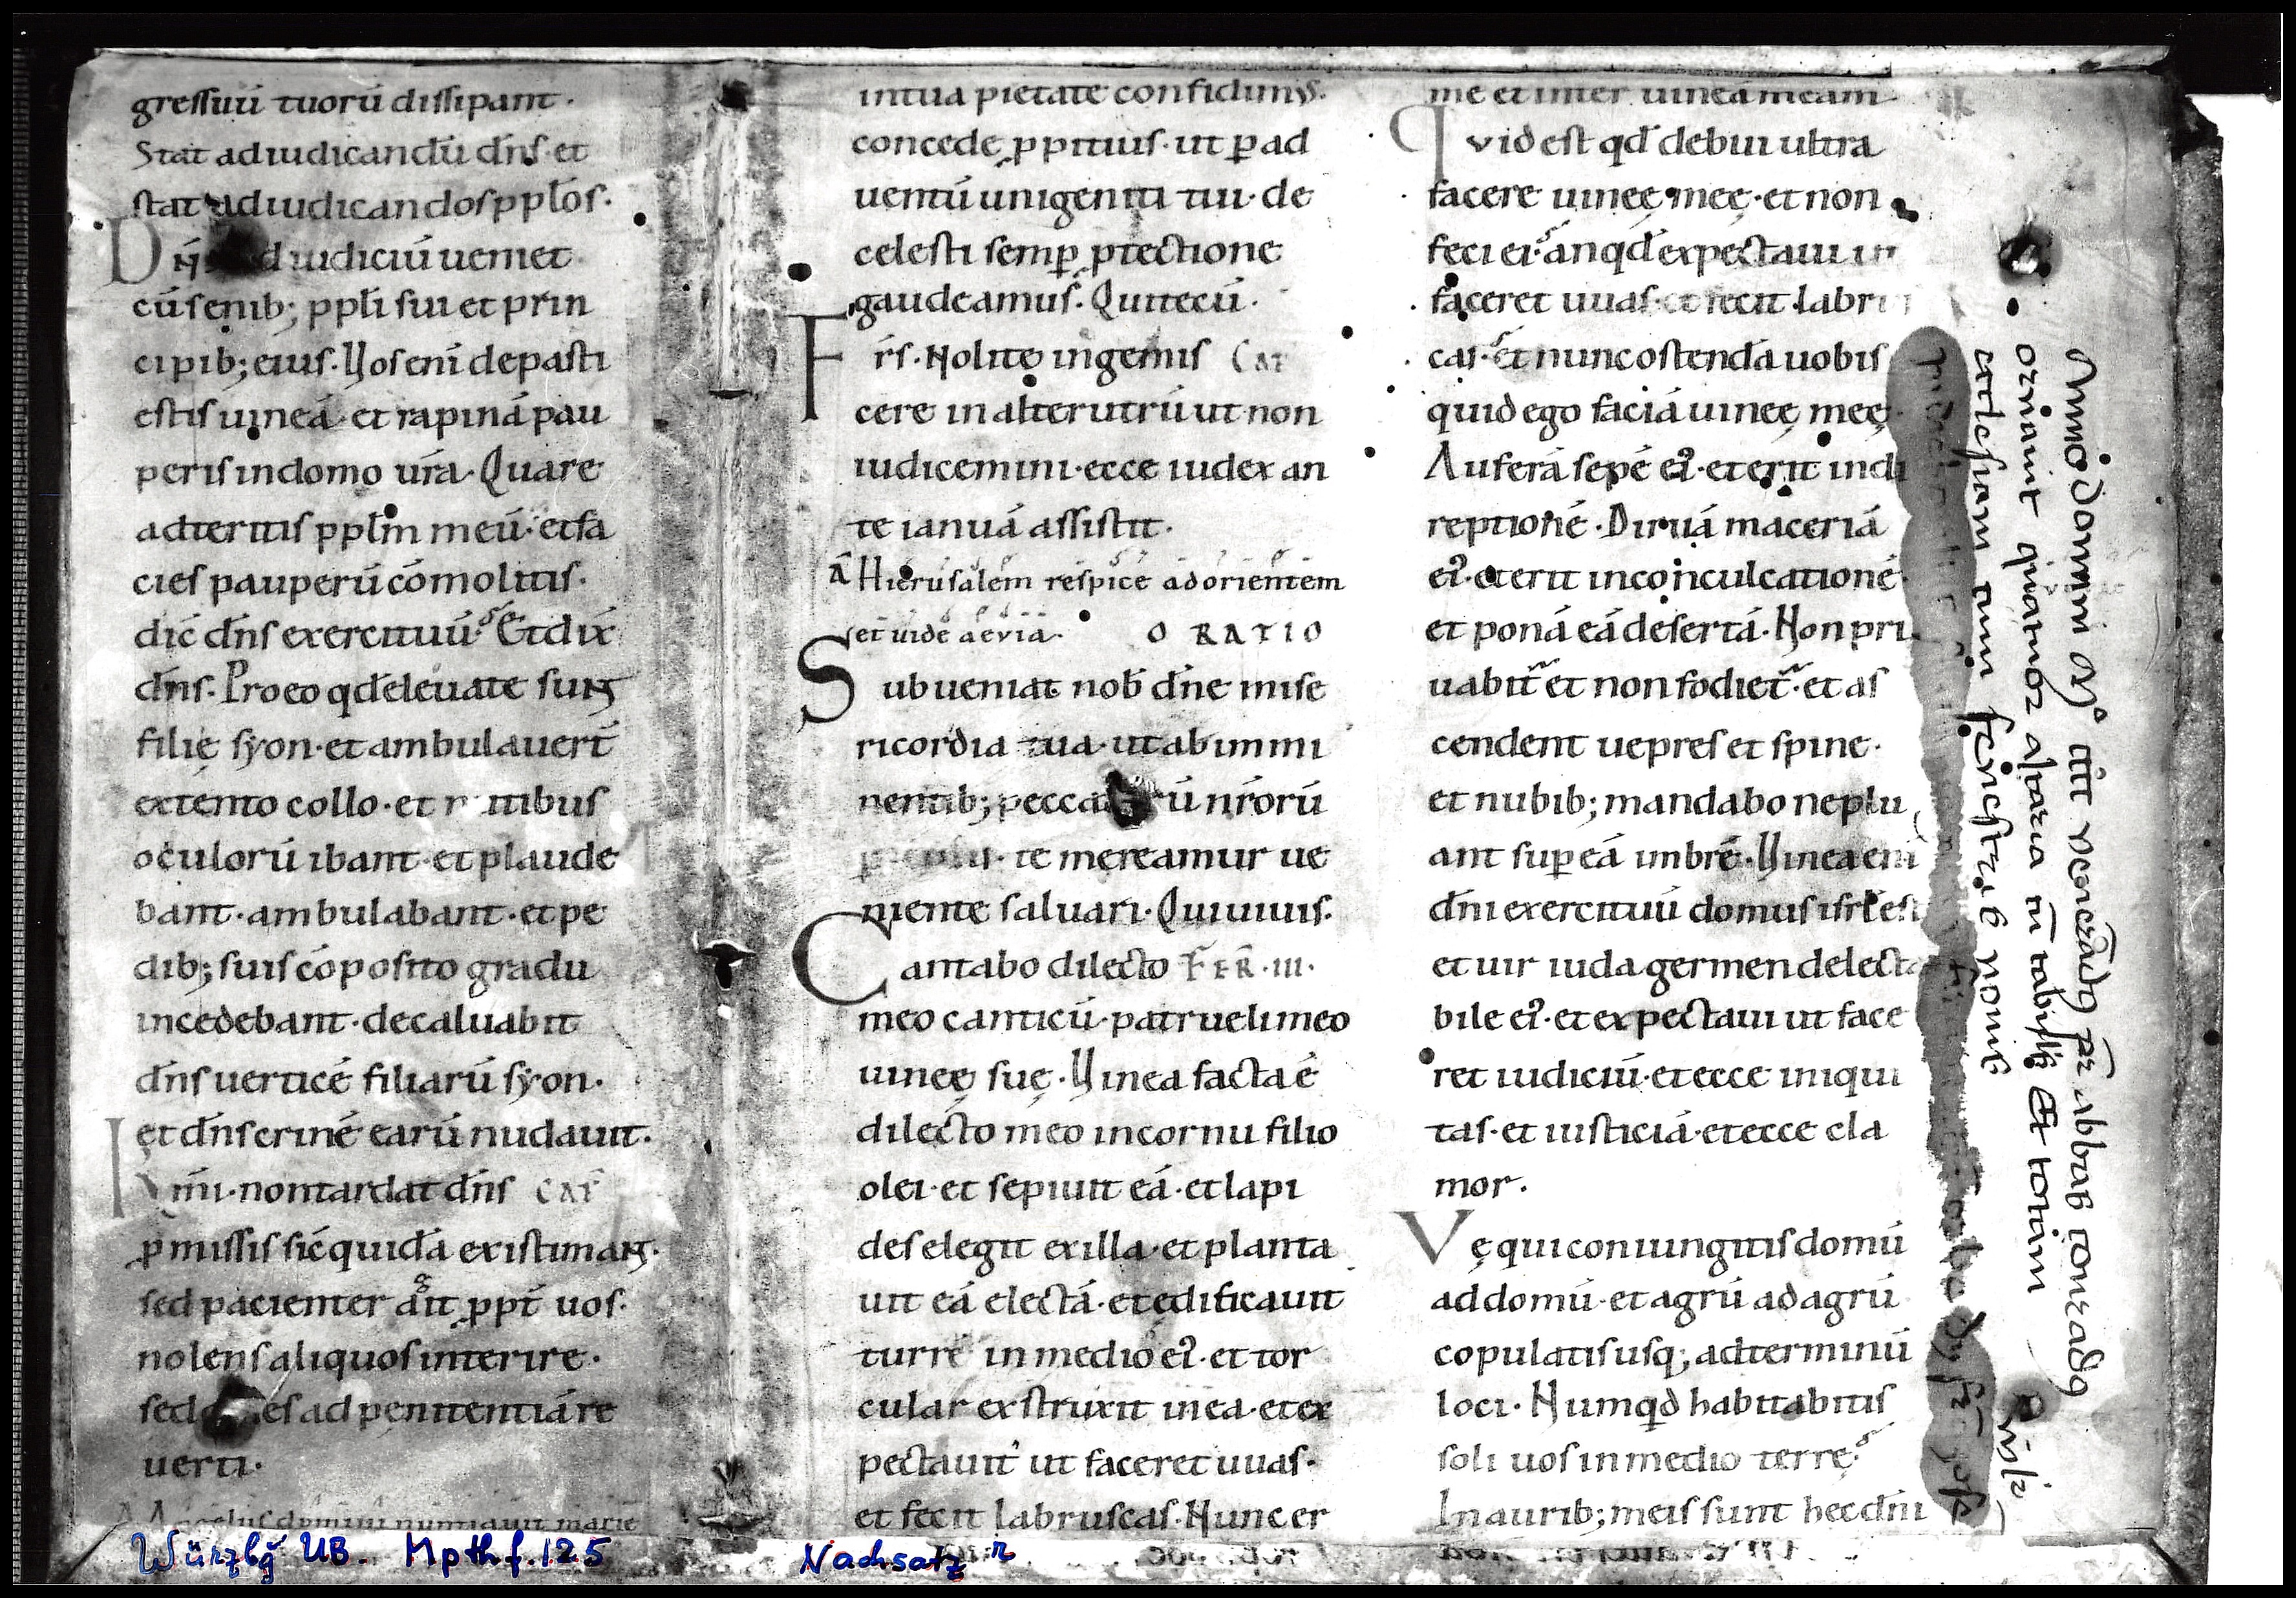 gressuū tuorū dissipant.
Stat ad iudicandū dn̄s. et
stat ad iudicandos pplōs.
Dn̄s ad iudiciū ueniet
cū senib; ppl̄i sui et prin
cipib; eius. Uos eni depasti
estis uineā. et rapinā pau
peris in domo ur̄a. Quare
adteritis ppl̄m meū. et fa
cies pauperū cōmolitis.
dic̄ dn̄s exercituū. Et dix̄
dn̄s. Pro eo qd̄ eleuate sunt
filię syon. et ambulauer̄t
extento collo. et n tibus
oculorū ibant. et plaude
bant. ambulabant. et pe
dib; suis cōposito gradu
incedebant. decaluabit
dn̄s uerticē filiarū syon.
et dn̄s crinē earū nudauit.
mi. non tardat dn̄s CAP̄
p̄missis sic̄ quidā existimant.
sed pacienter ait ppt̄ uos.
nolens aliquos interire.
sed es ad penitentiā re
uerti.
A Angelus domini nuntiauit marię
in tua pietate confidimus.
concede ppitius. ut p ad
uentū unigeniti tui. de
celesti semp ptectione
gaudeamus. Qui tecū.
Fr̄s. Nolite ingemis CAP̄
cere in alterutrū ut non
iudicemini. ecce iudex an
te ianuā assistit.
ā Hierusalem respice ad orientem
et uide aeuia. ORATIO
Subueniat nob̄ dn̄e mise
ricordia tua. ut ab immi
nentib; pecca rū nr̄orū
te mereamur ue
niente saluari. Qui uiuis.
Cantabo dilecto FER̄.III.
meo canticū. patrueli meo
uineę suę. Uinea facta ē
dilecto meo in cornu filio
olei. et sepiuit eā. et lapi
des elegit ex illa. et planta
uit eā electā. et edificauit
turrē in medio ei᾽. et tor
cular exstruxit in ea. et ex
pectauit ut faceret uuas.
et fecit labruscas. Nunc er
me et inter uineā meam
Quid est qd̄ debui ultra
facere uineę meę. et non
feci ei. an qd̄ expectaui ut
faceret uuas. et fecit labru
cas. et nunc ostendā uobis
quid ego faciā uineę meę.
Auferā sepē ei᾽. et erit in di
reptionē. Diruā maceriā
ei᾽. et erit in conculcationē.
et ponā eā desertā. Non pu
uabit̄ et non fodiet̄. et as
cendent uepres et spine.
et nubib; mandabo ne plu
ant sup eā imbrē. Uinea enī
dn̄i exercituū domus isrł est
et uir iuda germen delecta
bile ei᾽. et expectaui ut face
ret iudiciū. et ecce iniqui
tas. et iusticiā. et ecce cla
mor.
Vę qui coniungitis domū
ad domū. et agrū ad agrū
copulatis usq; ad terminū
loci. Numqd̄ habitabitis
soli uos in medio terre?
In aurib; meis sunt hec dn̄i
Anno domini
ornauit quatuor altaria cū tabulis Et totam
Würzbg UB. Mpthf.125
Nachsatz r